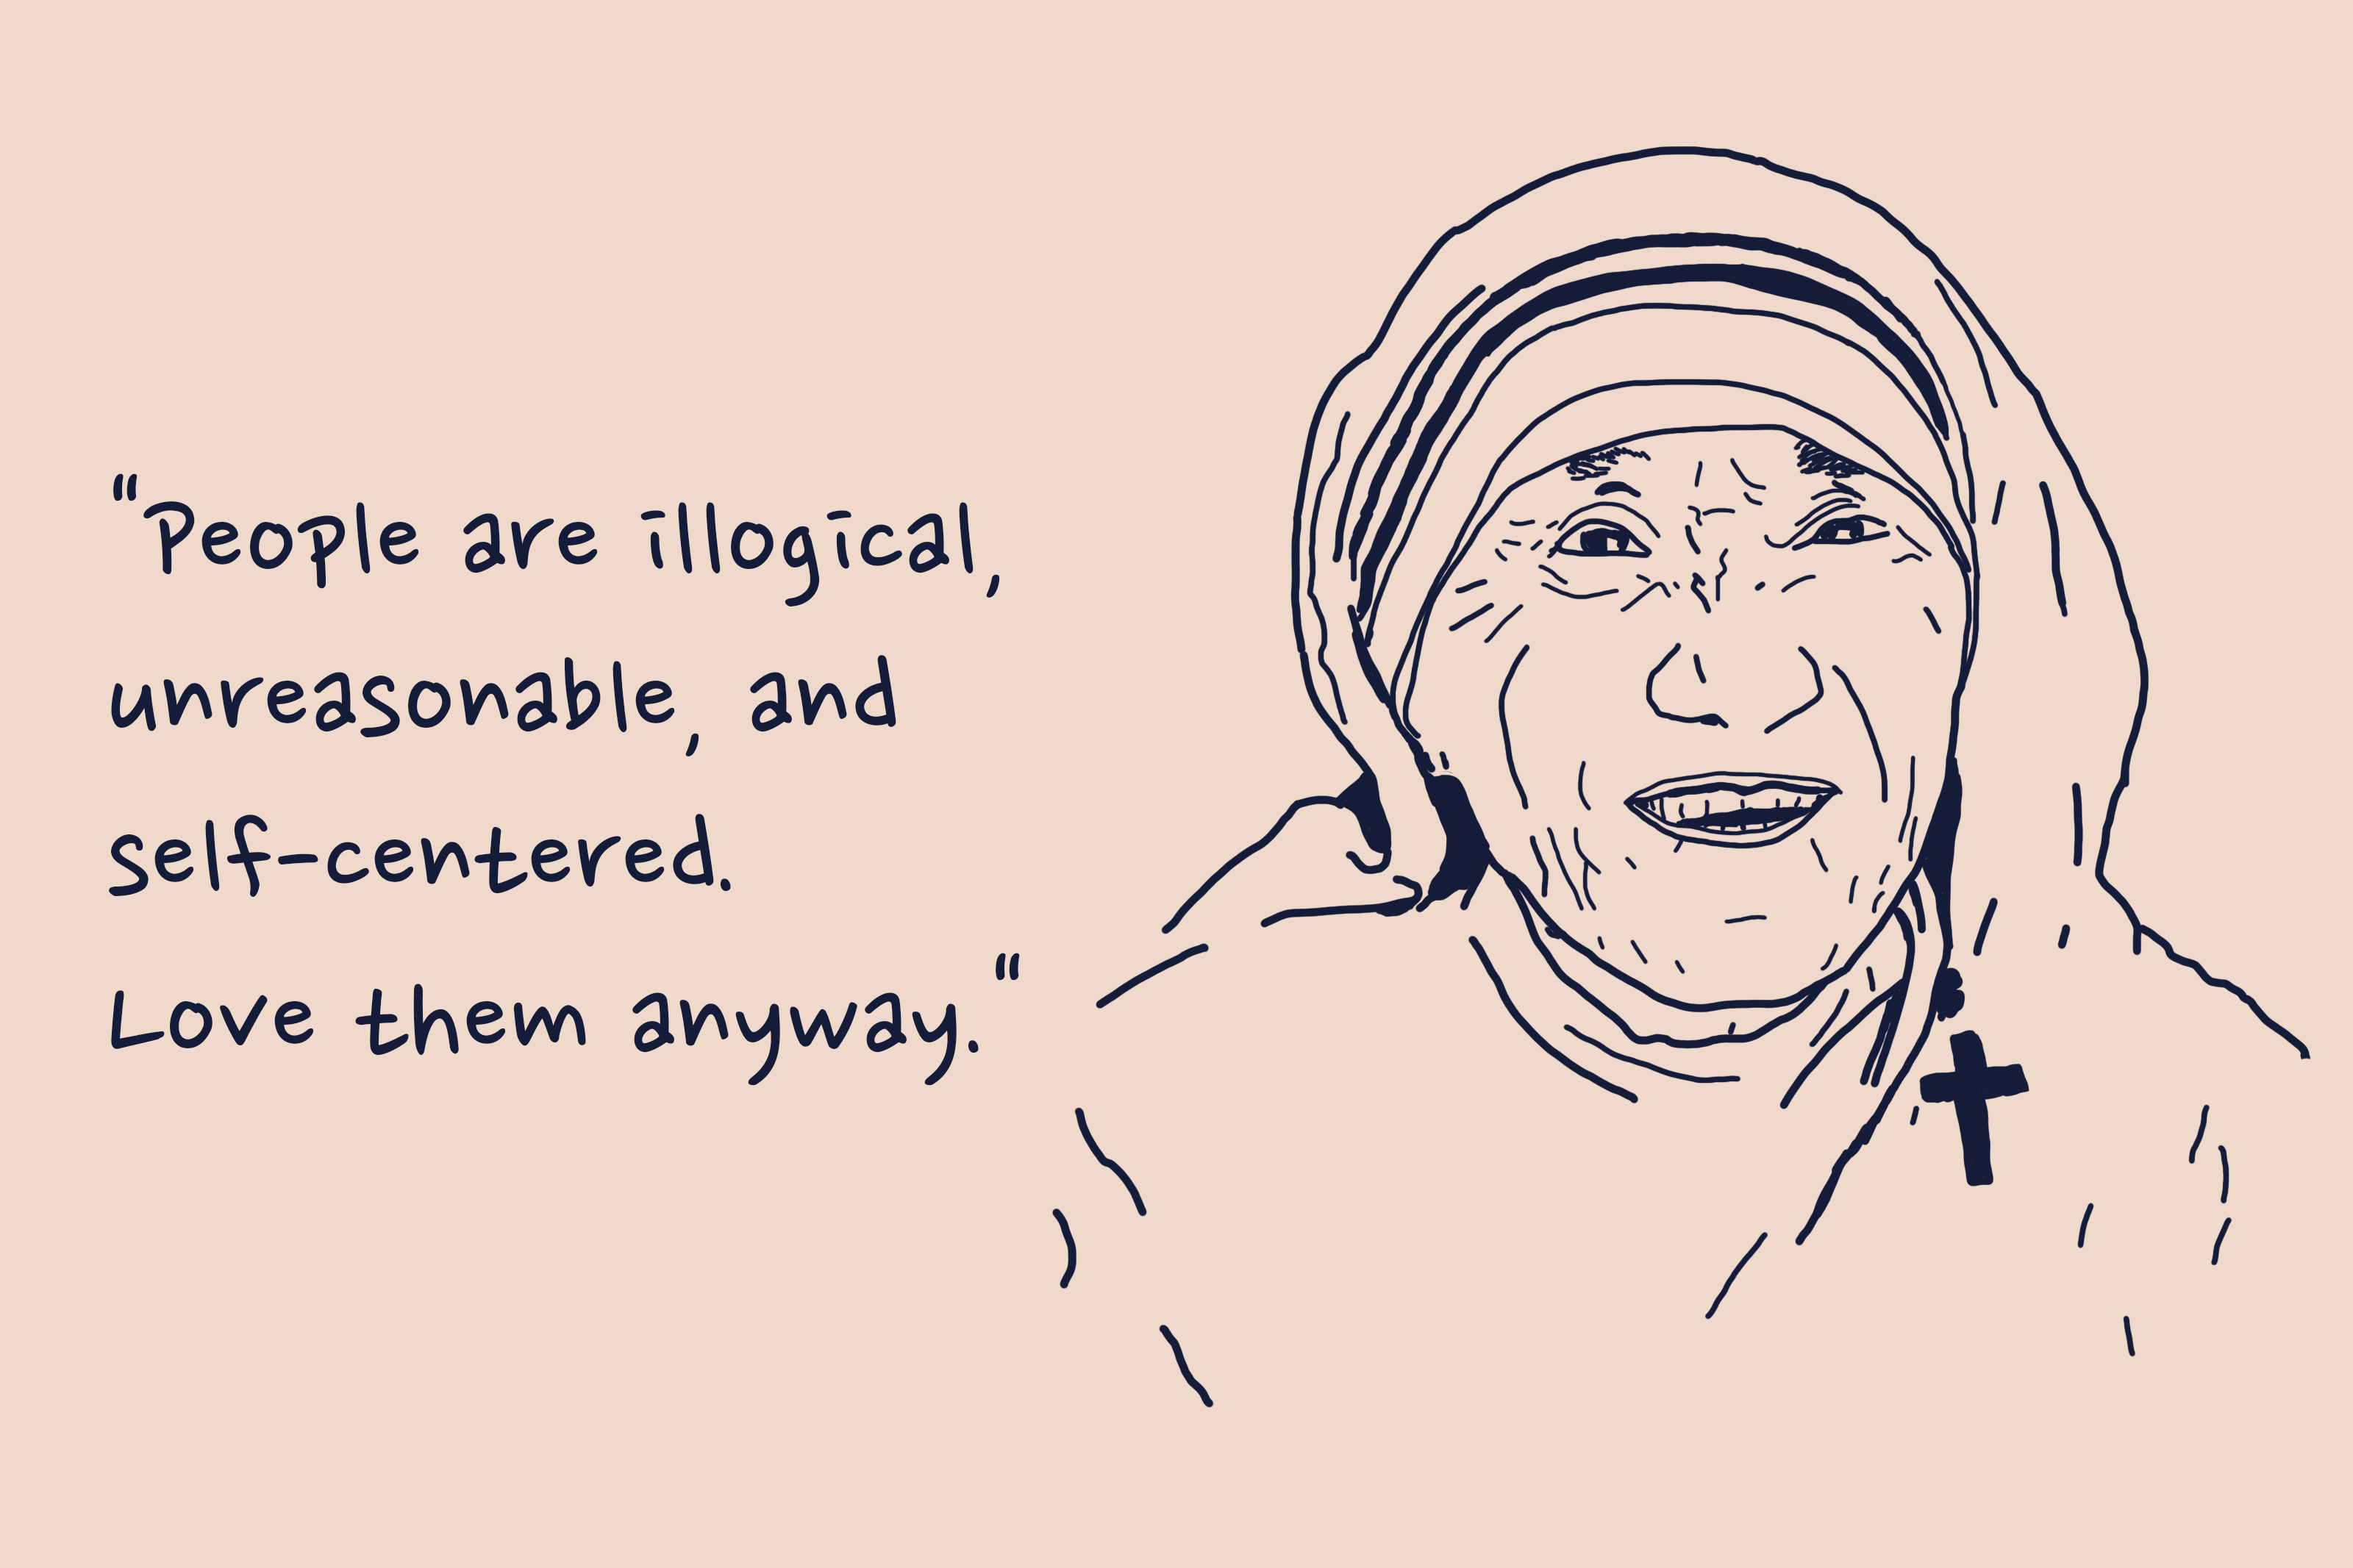 "People are illogical,
unreasonable, and
self-centered.
Love them anyway."